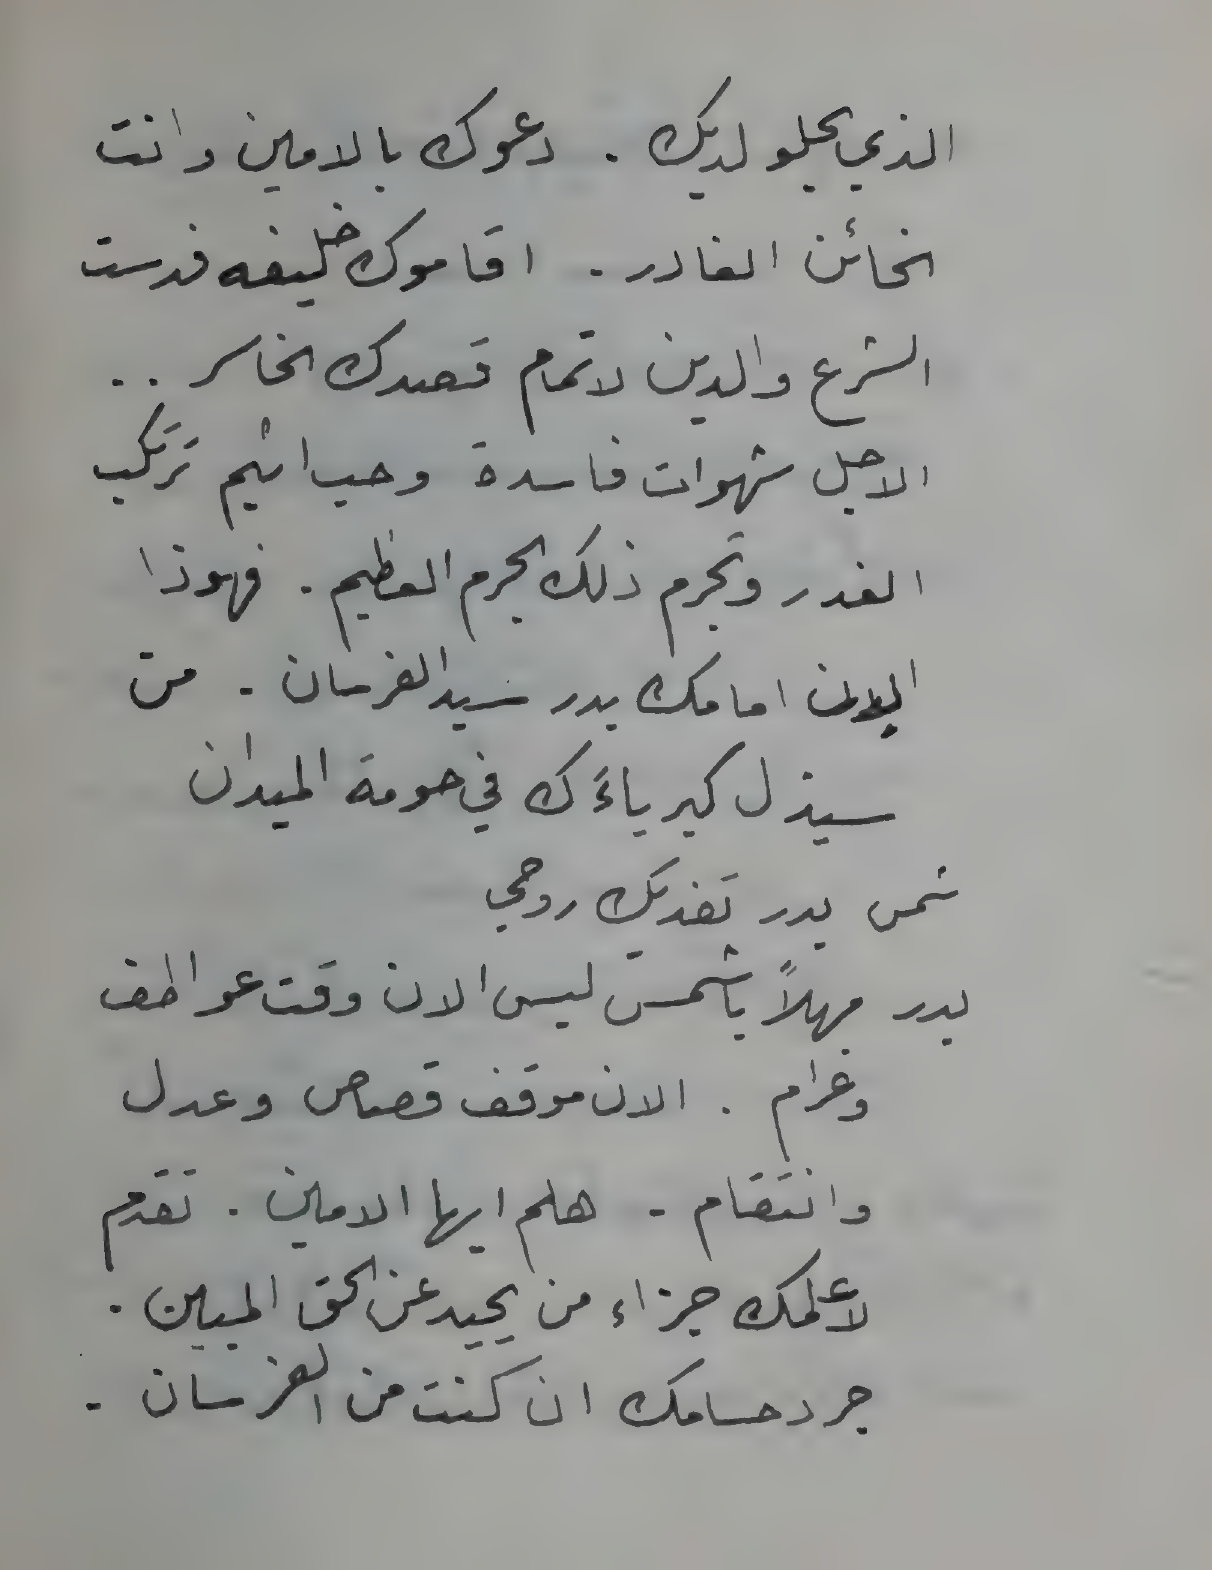 الذي يحلو لديك . دعوك بالامين وانت
الخائن الغادر . اقاموك خليفه فدست
الشرع والدين لاتمام قصدك الخاسر ..
الاجل شهوات فاسدة وحب اثيم ترتكب
الغدر وتجرم ذلك الجرم العظيم . فهوذا
امامك بدر سيد الفرسان . من
سيذل كبرياءك في حومة الميدان
شمس بدر تفديك روحي
بدر مهلاً يا شمس ليس الان وقت عواطف
وغرام . الان موقف قصاص وعدل
وانتقام . هلم ايها الامين . تقدم
لاعلمك جزاء من يحيد عن الحق المبين .
جرد حسامك ان كنت من الفرسان .